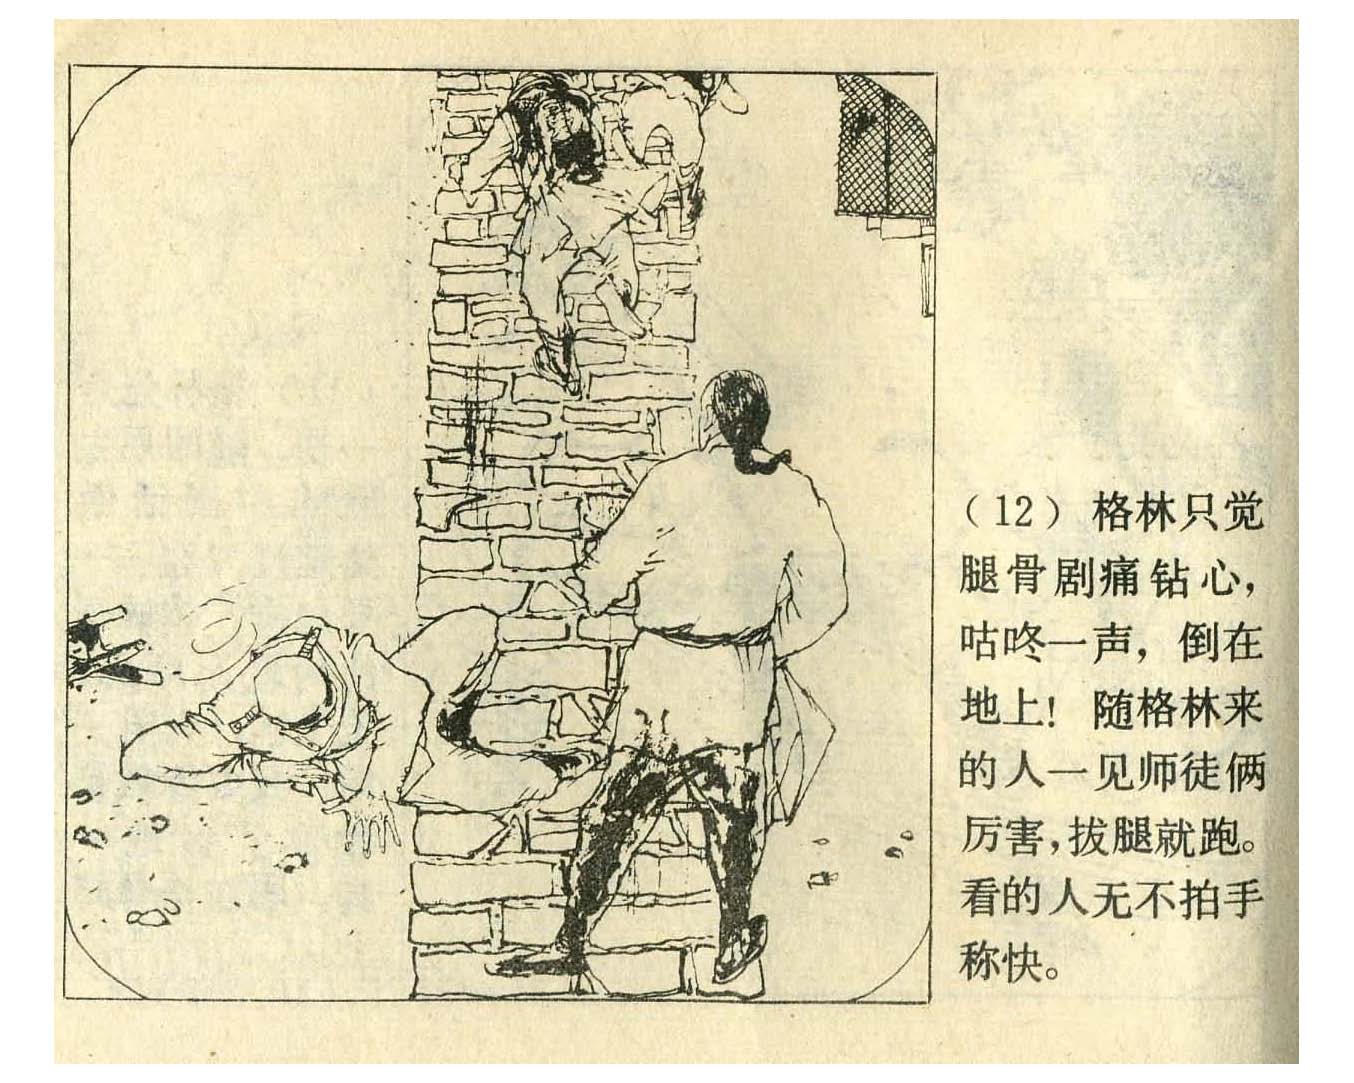 （12） 格林只觉
腿骨剧痛钻心，
咕咚一声，倒在
地上！随格林来
的人一见师徒俩
厉害，拔腿就跑。
看的人无不拍手
称快。